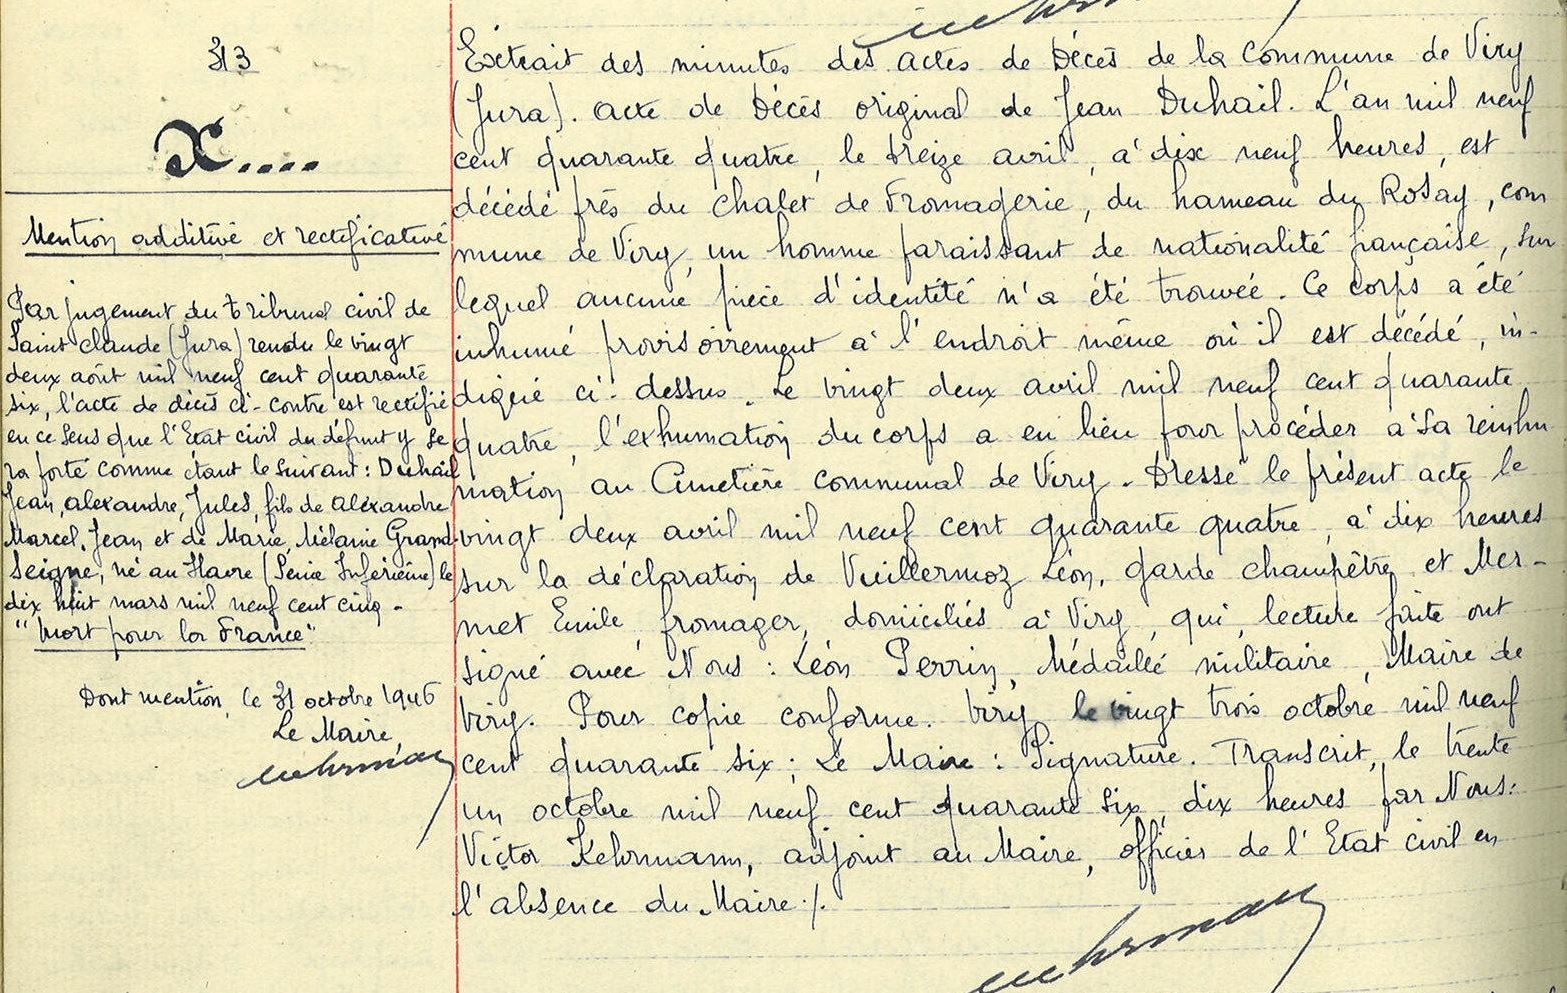 313
X....
Mention additive et rectificative
Par jugement du tribunal civil de
Saint Claude (Jura) rendu le vingt
deux août mil neuf cent quarante
six, l'acte de décès ci-contre est rectifié
en ce sens que l'Etat civil du défunt y se
ra porté comme étant le suivant : Duhail
Jean, Alexandre, Jules, fils de Alexandre
Marcel, Jean et de Marie, Mélanie Grand-
Seigne, né au Havre (Seine Inférieure) le
dix huit mars mil neuf cent cinq -
"Mort pour la France"
Dont mention, le 31 octobre 1946
Le Maire,
Extrait des minutes des actes de Décès de la Commune de Viry
(Jura). acte de Décès original de Jean Duhail. L'an mil neuf
cent quarante quatre, le treize avril, à dix neuf heures, est
décédé près du chalet de Fromagerie, du hameau du Rosay, com
mune de Viry, un homme paraissant de nationalité française, sur
lequel aucune pièce d'identité n'a été trouvée. Ce corps a été
inhumé provisoirement à l'endroit même où il est décédé, in-
diqué ci-dessus. Le vingt deux avril mil neuf cent quarante
quatre, l'exhumation du corps a eu lieu pour procéder à sa reinhu
mation au Cimetière communal de Viry. Dressé le présent acte le
vingt deux avril mil neuf cent quarante quatre, à dix heures
sur la déclaration de Vuillermoz Léon, garde champêtre et Mer-
met Emile, fromager, domiciliés à Viry, qui, lecture faite ont
signé avec Nous : Léon Perrin, Médaillé militaire, Maire de
Viry. Pour copie conforme. Viry le vingt trois octobre mil neuf
cent quarante six ; Le Maire : Signature. Transcrit, le trente
un octobre mil neuf cent quarante six, dix heures par Nous:
Victor Kehrmann, adjoint au Maire, officier de l'Etat civil en
l'absence du Maire ./.